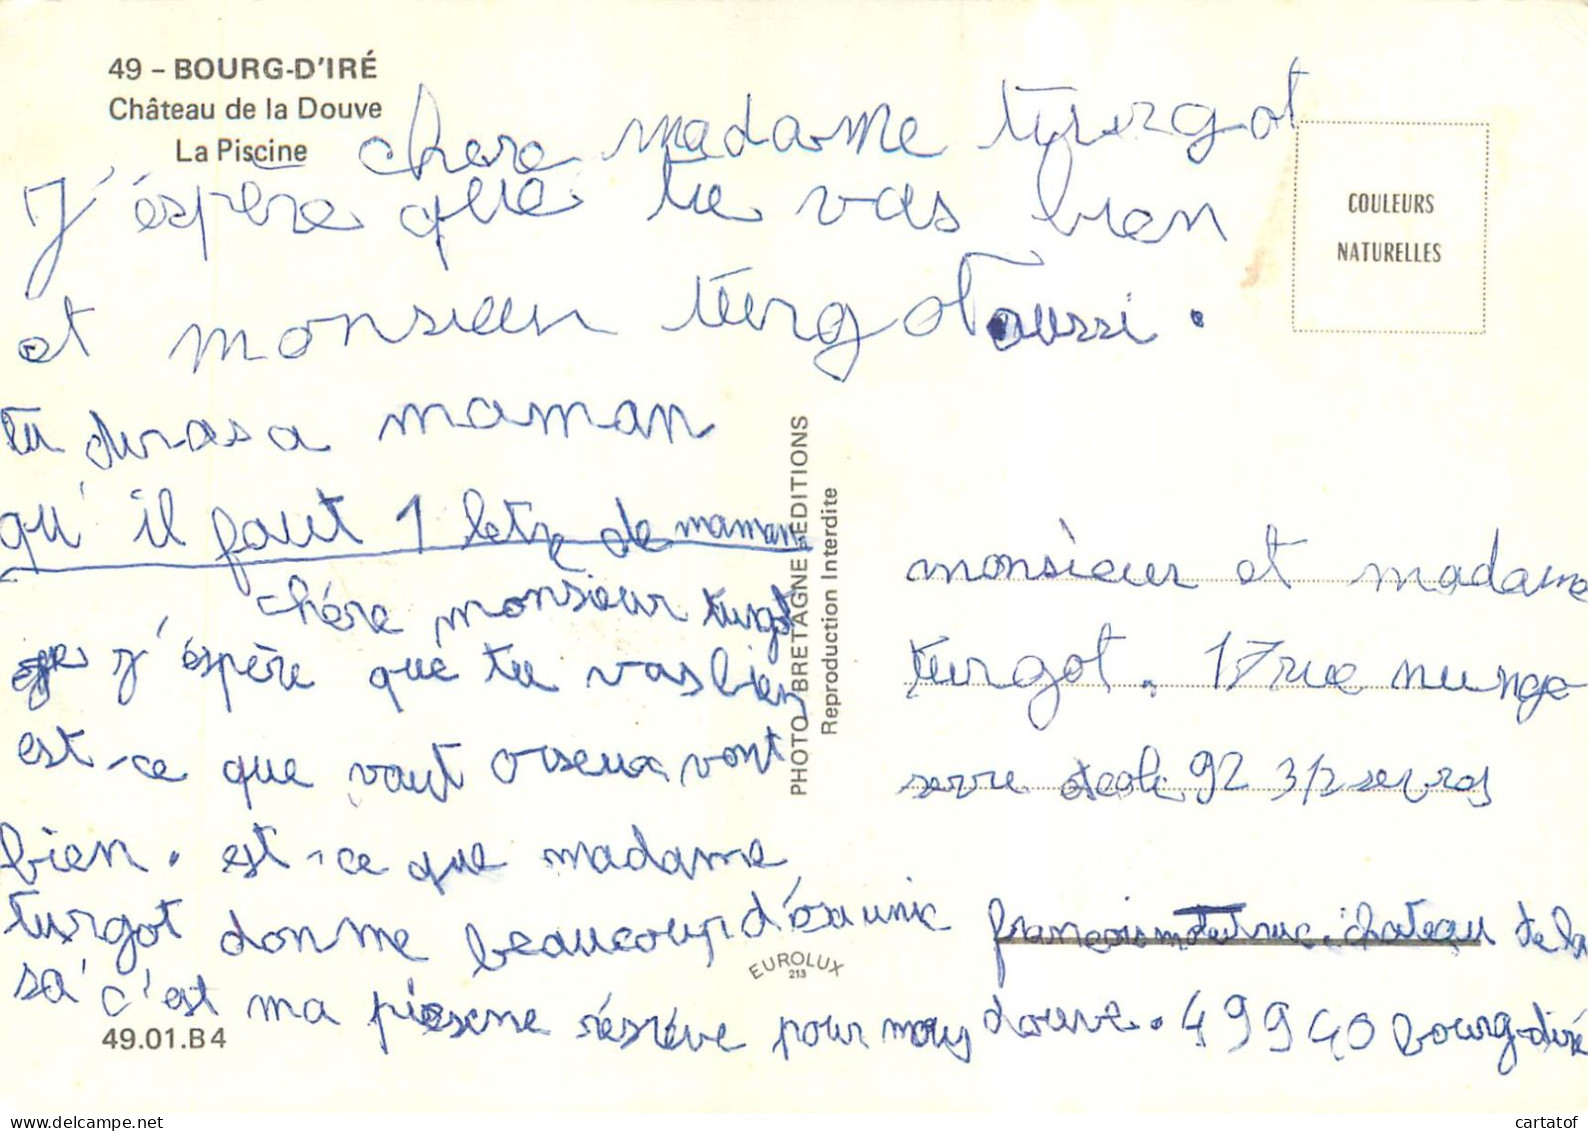 49 - BOURG-D'IRÉ
Château de la Douve
La Piscine
COULEURS
NATURELLES
chere madame turgot
J'éspère que tu vas bien
et monsieur turgot aussi.
tu diras a maman
qu'il faut 1 letre de maman
chére monsieur turgot
j'éspère que tu vas bien
est-ce que vaut oiseux vont
bien. est-ce que madame
turgot donme beaucoup d'
sa' c'est ma piesine résréve pour moy
PHOTO BRETAGNE EDITIONS
Reproduction Interdite
EUROLUX
213
49.01.B4
monsieur et madame
turgot. 17 rue nunge
serre 92 312 sevres
francois chateau de la
douve. 49940 bourg-diré
www.delcampe.net
cartatof